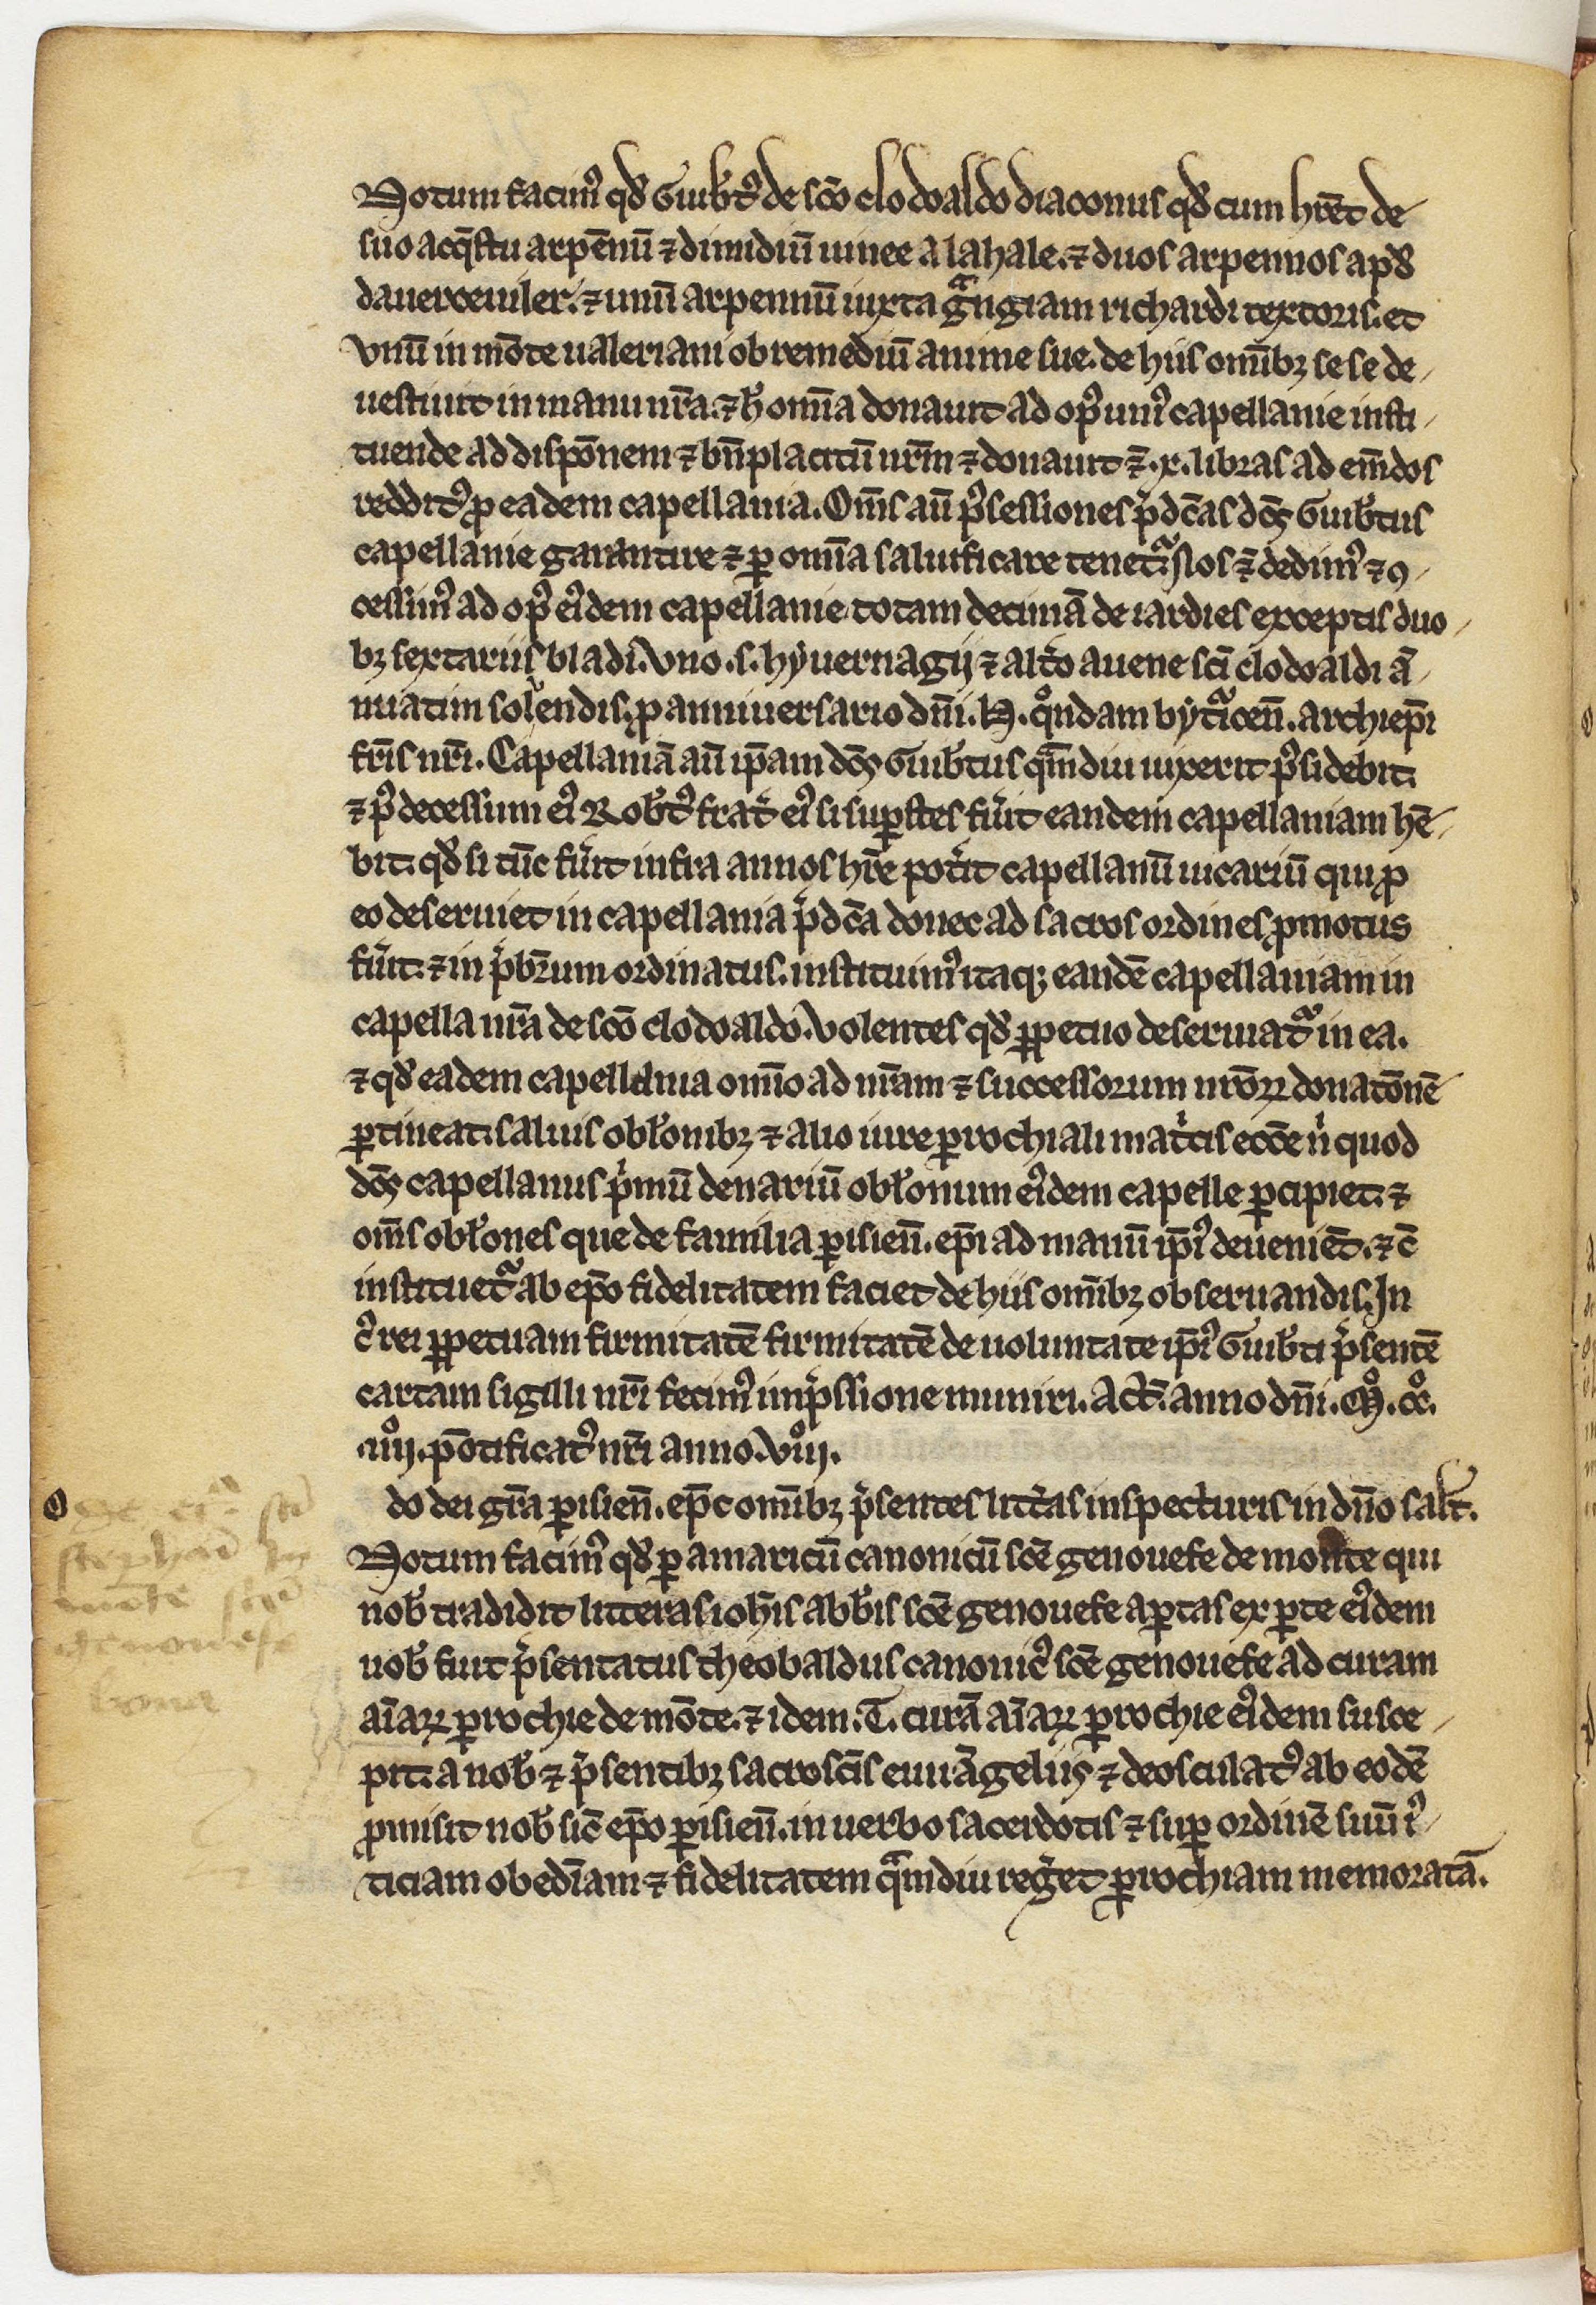 Notum facimꝰ qđ Guibꝉtꝰ de scō clodoaldo diaconus qđ cum hr̄et de
suo acq̄stu arpēnū ⁊ dimidiū uinee a la hale. ⁊ duos arpennos apđ
dauerceuiler. ⁊ unū arpennū iuxta gᷓngiam richardi textoris. et
vnū in mōte ualeriani ob remediū anime sue. de hiis om̄ibꝫ se se de
uestiuit in manu nr̄a. ⁊ ħ om̄ia donauit ad opꝰ unꝰ capellanie insti
tuende ad dispōnem ⁊ bn̄placitū nr̄m ⁊ donauit ⁊̄ .x. libras ad em̄dos
redditꝰ ꝓ eadem capellania. Om̄s aū pꝰsessiones p̄dc̄as dc̄s Guibꝉtus
capellanie garantire ⁊ ꝑ om̄ia saluificare tenetᷓ. Nos ⁊̄ dedimꝰ ⁊ ꝯ
cessimꝰ ad opꝰ eiꝰdem capellanie totam decimā de iardies exceptis duo
bꝫ sextariis bladi. vno .s. hyuernagij ⁊ altͥo auene sc̄i clodoaldi ā
nuatim soluendis. ꝓ anniuersario dn̄i .H. qͦndam bytᷓicen̄. archiep̄i
fr̄is nr̄i. Capellaniā aū ip̄am dc̄s Guibꝉtus qᷓmdiu uixerit pꝰsidebit.
⁊ pꝰ decessum eiꝰ Robꝉtꝰ frat̉ eiꝰ si suꝑstes fủit eandem capellaniam hē
bit. qđ si tūc fủit infra annos hr̄e pot̉it capellanū uicariū qui ꝓ
eo deseruiet in capellania p̄dc̄a donec ad sacros ordines ꝓmotus
fủit. ⁊ in p̄sbr̄um ordinatus. instituimꝰ itaqꝫ eandē capellaniam in
capella nr̄a de scō clodoaldo. Volentes qđ ꝑpetuo deseruiatᷓ in ea.
⁊ qđ eadem capellania om̄īo ad nr̄am ⁊ successorum nr̄oꝝ donatōnē
ꝑtineat. saluis obꝉonibꝫ ⁊ alio iure ꝑrochiali mat̉cis ecc̄e nͥ quod
dc̄s capellanus p̄mū denariū obꝉonum eiꝰdem capelle ꝑcipiet. ⁊
om̄s obꝉones que de familia ꝑisien̄. ep̄i ad manū ip̄iꝰ deueniēt. ⁊ c̄
instituetᷓ ab ep̄o fidelitatem faciet de hiis om̄ibꝫ obseruandis. In
cꝰ rei ꝑpetuam firmitatē firmitatē de uoluntate ip̄iꝰ Guibꝉti p̄sentē
cartam sigilli nr̄i fecimꝰ imp̄ssione muniri. Act̄. anno dn̄i .Mͦ. CCͦ.
.iiijͦ. pōtificatꝰ nr̄i anno .viijͦ.
O do dei gr̄a ꝑisien̄. ep̄c om̄ibꝫ p̄sentes litt̉as inspecturis in dn̄o saꝉt.
Notum facimꝰ qđ ꝑ amaricū canonicū sc̄e genouefe de monte qui
nob̄ tradidit litteras ioh̄is abb̄is sc̄e genouefe aꝑtas ex ꝑte eiꝰdem
nob̄ fuit p̄sentatus theobaldus canonicꝰ sc̄e genouefe ad curam
aīaꝝ ꝑrochie de mōte. ⁊ idem .T. curā aīaꝝ ꝑrochie eiꝰdem susce
pit. a nob̄ ⁊ p̄sentibꝫ sacrosc̄is euuāgeliis ⁊ deosculatꝰ ab eodē
ꝓmisit nob̄ sic̄ ep̄o ꝑisien̄. in uerbo sacerdotis ⁊ suꝑ ordinē suū iꝰ
ticiam obedīam ⁊ fidelitatem qᷓmdiu reg̉et ꝑrochiam memoratā.
stephani
genouefe